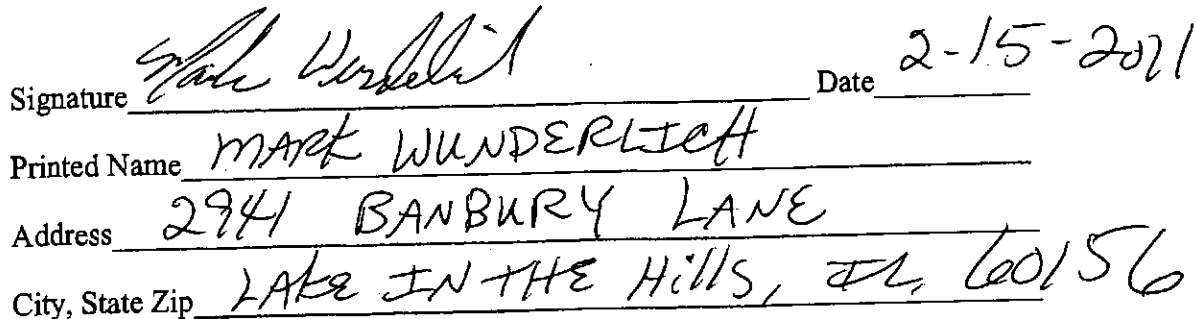 Signature Mark Wunderlich Date 2-15-2021
Printed Name MARK WUNDERLICH
Address 2941 BANBURY LANE
City, State Zip LAKE IN THE Hills, IL, 60156